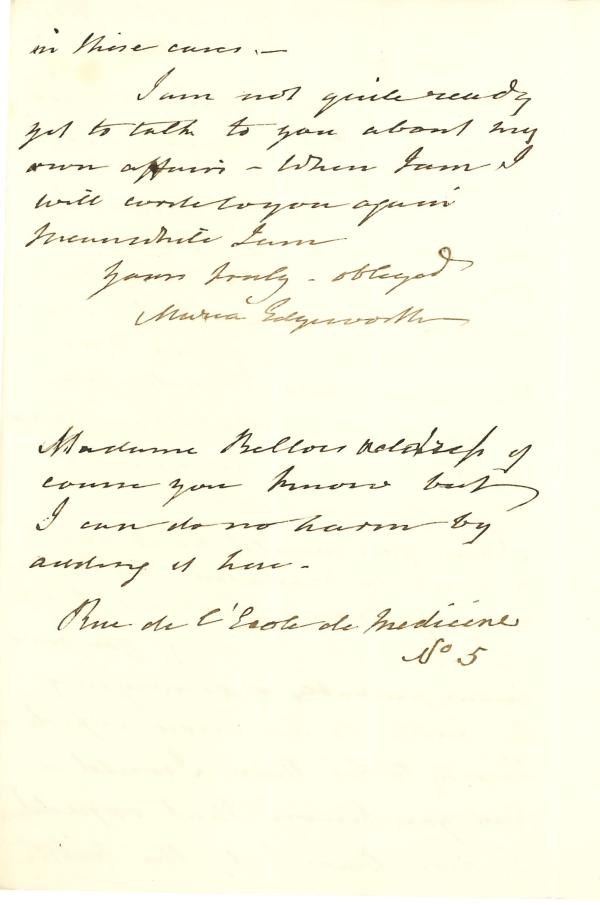 in these cases. —
I am not quite ready
yet to talk to you about my
own affairs — When I am I
will write to you again
Meanwhile I am
Yours truly - obliged
Maria Edgeworth
Madame Bellocs address of
course you know but
I can do no harm by
adding it here -
Rue de l'Ecole de Medicine
No 5